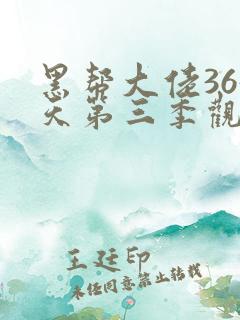 黑帮大佬36
天第三季觀
王廷印
未经同意禁止转载